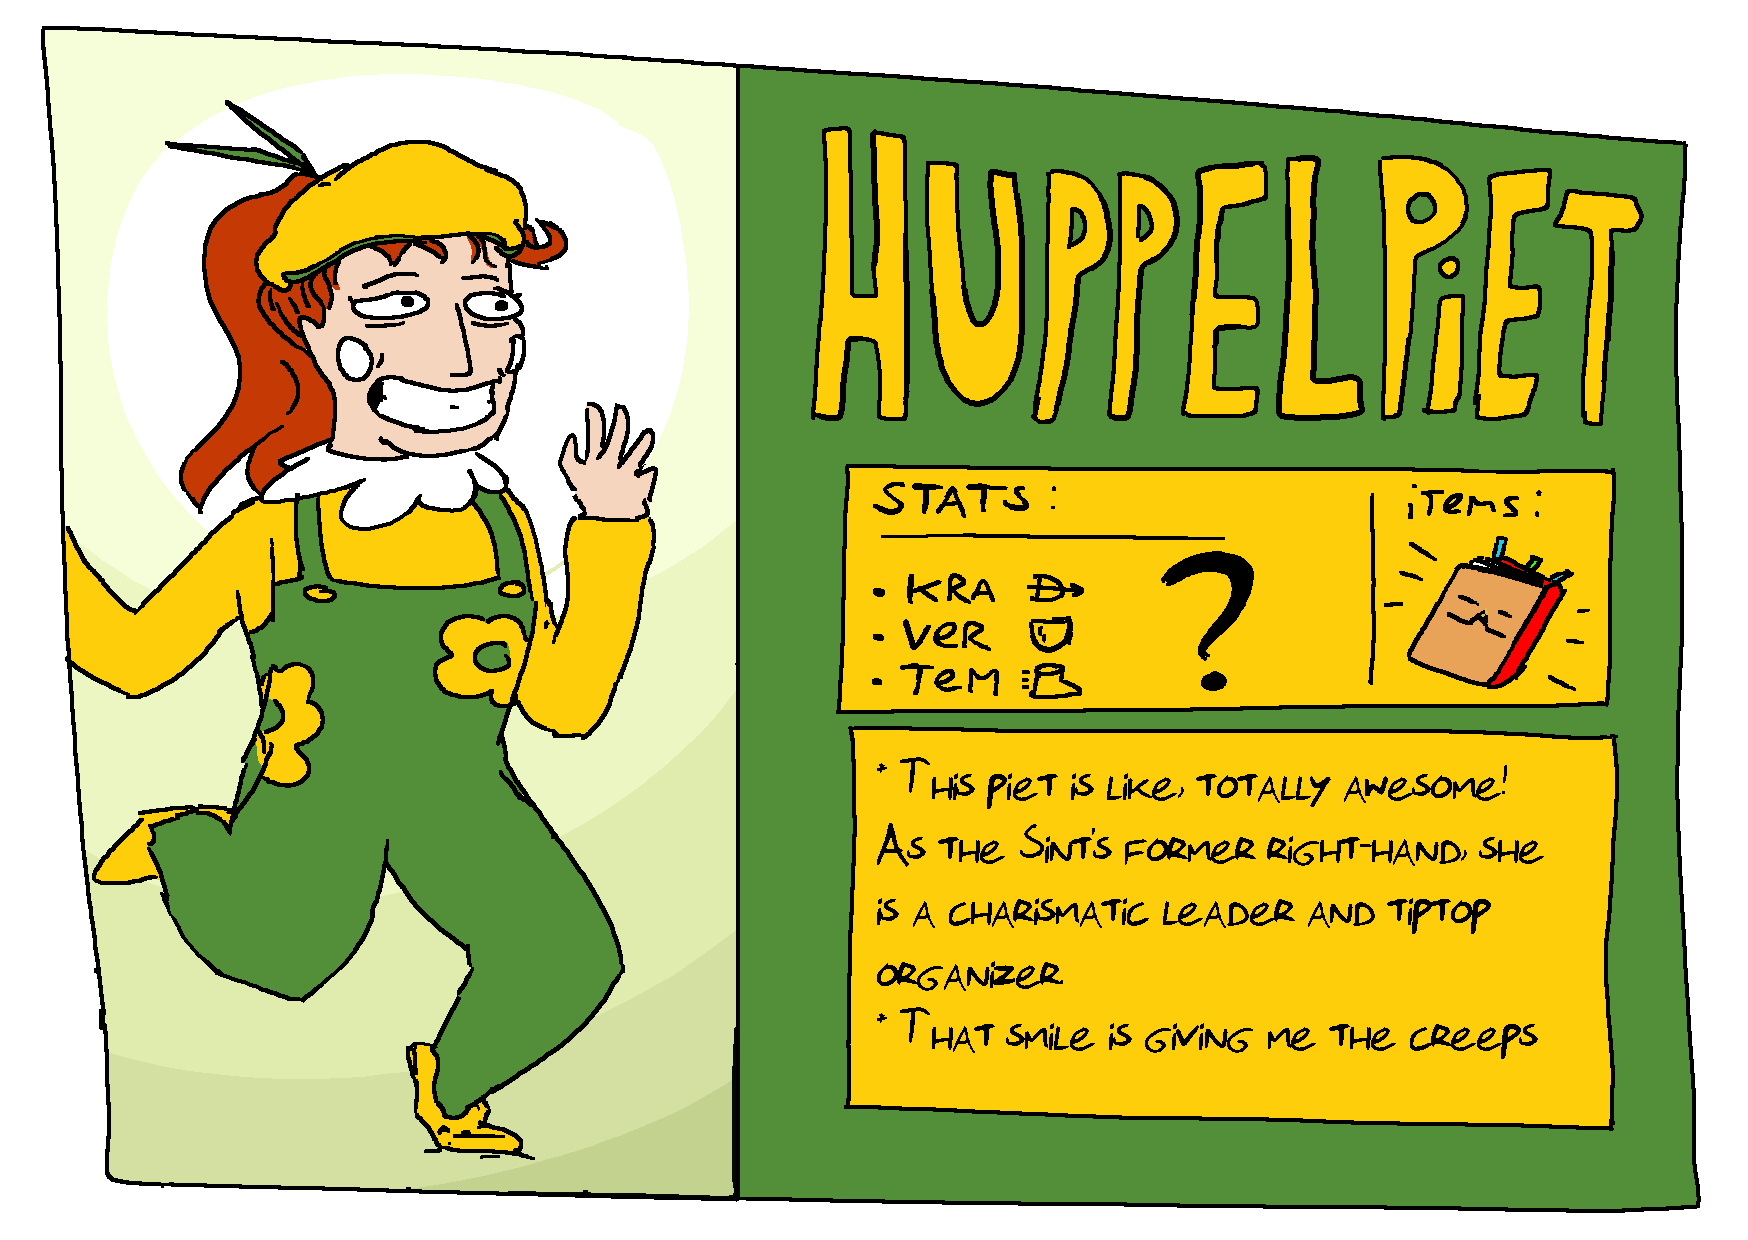 HUPPELPiET
STATS:
• KRA
• VeR
• TeM
?
iTeMs:
* THis PieT is Like, TOTALLY AWeSOMe!
AS THe SiNT'S FORMeR RiGHT-HAND, SHe
is A CHARiSMATiC LeADeR AND TiPTOP
ORGANiZeR.
* THAT SMiLe iS GiViNG Me THe CReePS